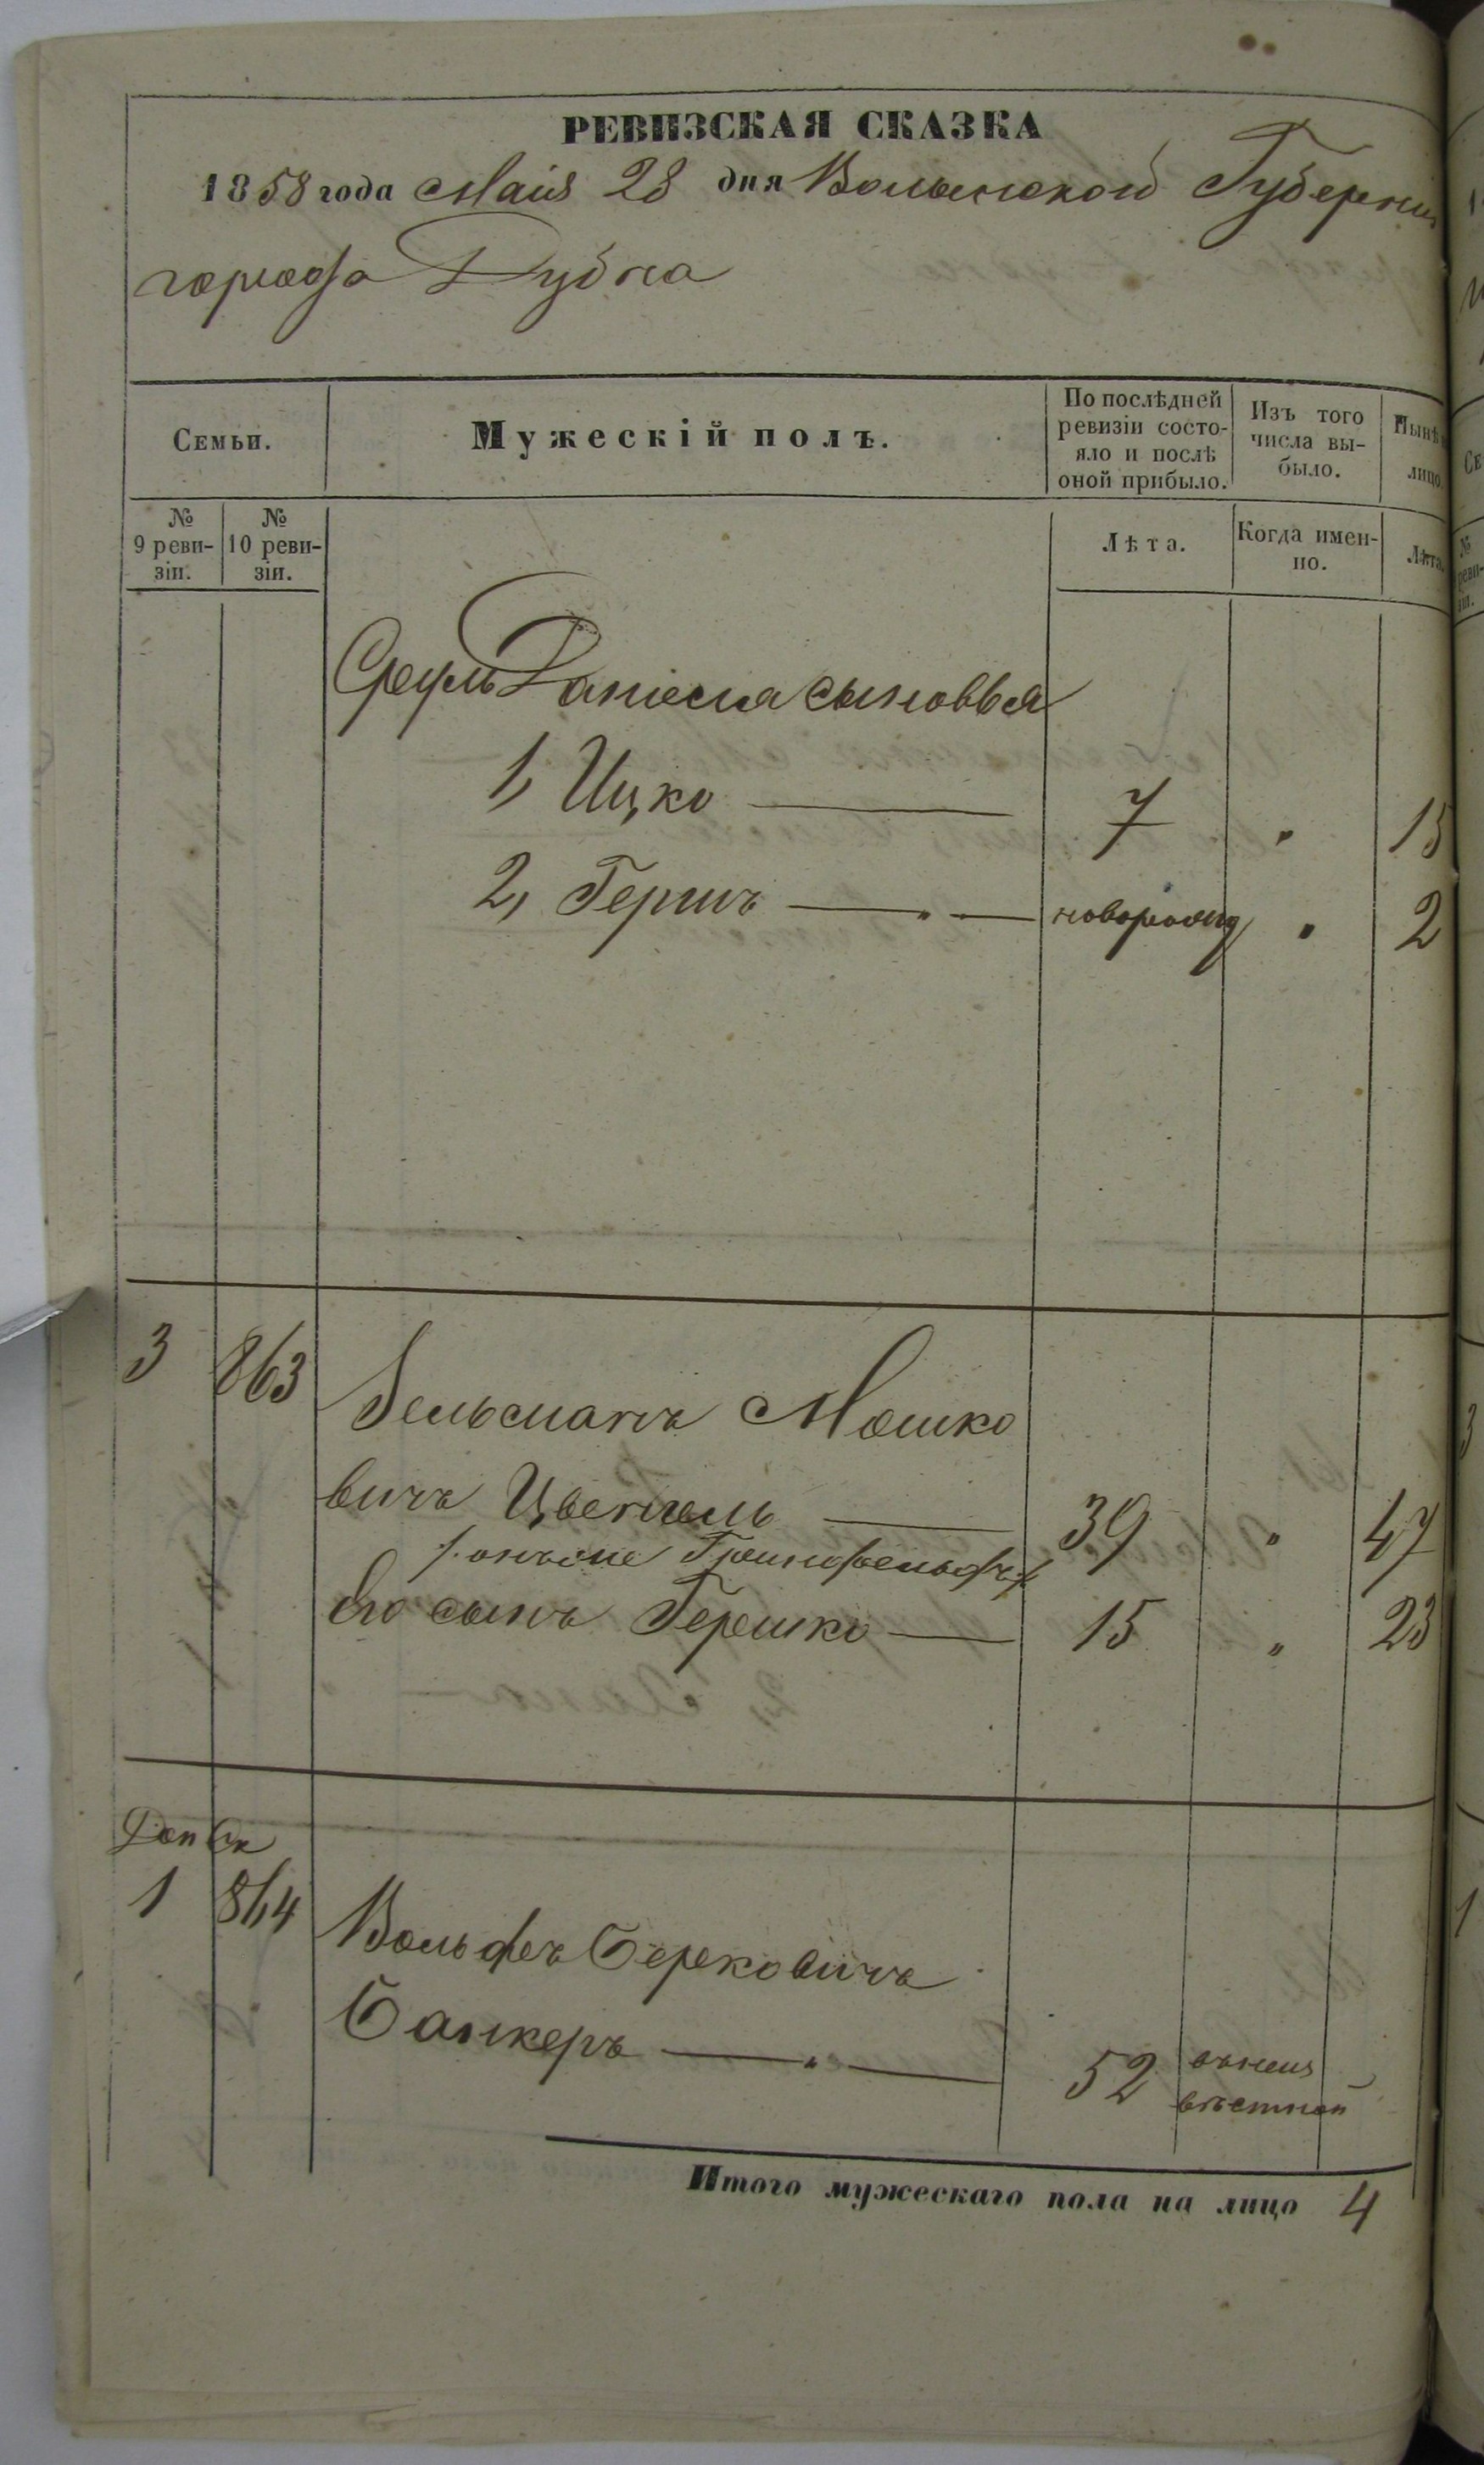 РЕВИЗСКАЯ СКАЗКА
1858 года Маія 28 дня Волынской Губерніи
города Дубна
Семьи.
Мужескій полъ.
По послѣдней ревизіи состо-
яло и послѣ
оной прибыло.
Изъ того
числа вы-
было.
Нынѣ
лицо.
№
9 реви-
зіи.
№
10 реви-
зіи.
Лѣта.
Когда имен-
но.
Лѣта.
Сруль Даніеля сыновья
1, Ицко 7 " 15
2, Гершъ новорожд " 2
3 863 Зельманъ Мошко
вичъ Цвенгель 39 " 47
/: онъ же Гринфельдъ :/
Его сынъ Гершко 15 " 23
Доп Ск
1 864 Вольфъ Берковичъ
Банкеръ 52
вѣстной
Итого мужескаго пола на лицо 4